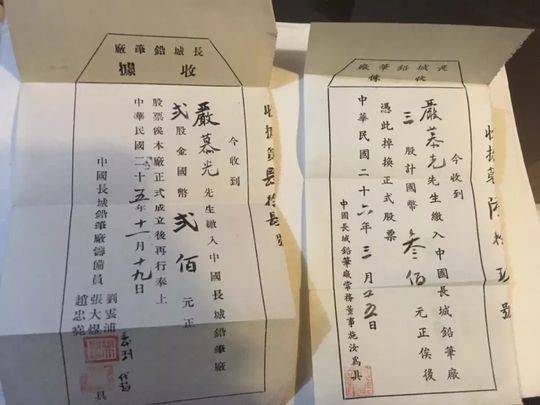 長城鉛筆廠
收據
今收到
嚴慕光先生繳入中國長城鉛筆廠
弍股金國幣弍佰元正
股票俟本廠正式成立後再行奉上
中華民國二十五年十一月十九日
中國長城鉛筆廠籌備員
劉雲浦
張大煜
趙忠堯
具
長城鉛筆廠
收條
號
今收到
嚴慕光先生繳入中國長城鉛筆廠
三股計國幣叁佰元正俟後
憑此掉換正式股票
中華民國二十六年三月二五日
中國長城鉛筆廠常務董事施汝為具